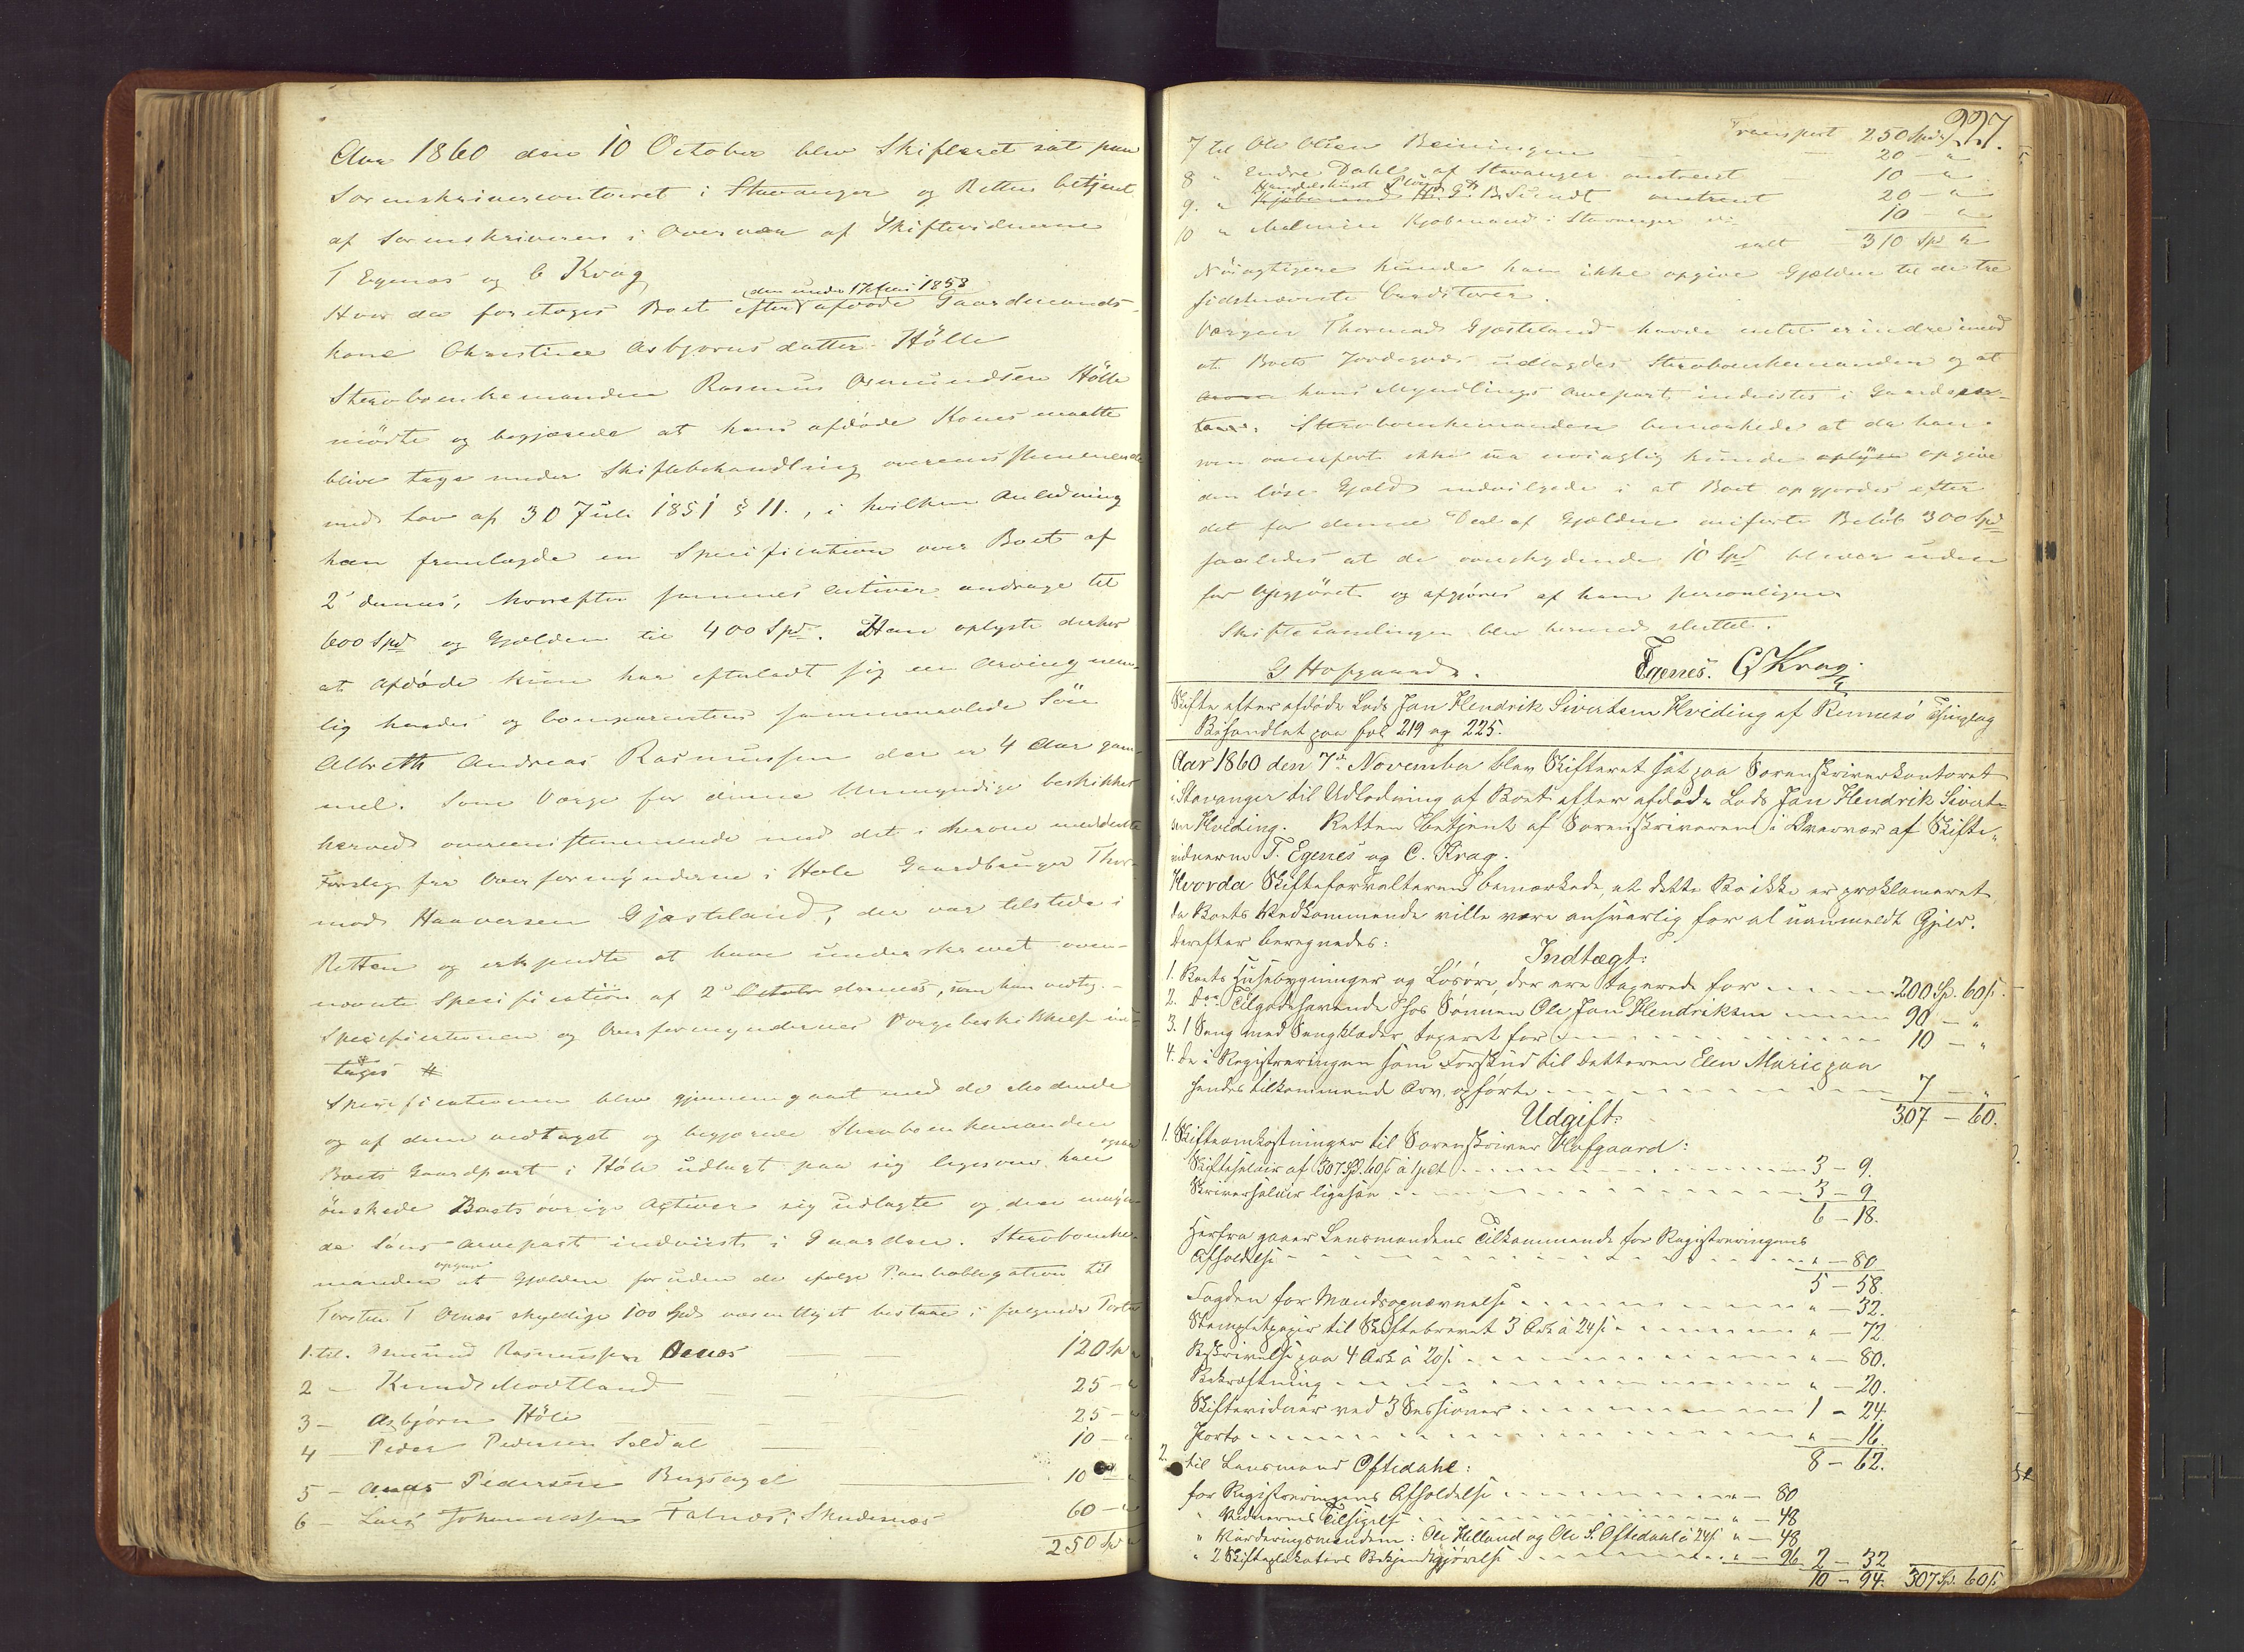 Aar 1860 den 10 October blev Skifteret sat paa
Sorenskrivercontoiret i Stavanger og Retten betjent
af Sorenskriveren i Overvær af Skiftevidnerne
T Egenes og C Krag
Hvor da foretoges Boet efter afdøde Gaardmands-
den under 17 Juni 1858
kone Christine Asbjørnsdatter Hölle
Sterbboenkemanden Rasmus Osmundsen Hölle
mödte og begjærede at hans afdöde Kones maatte
blive tage under Skiftebehandling overeensstemmende
med Lov af 30 Juli 1851 § 11., i hvilken Anledning
han fremlagde en Specification over Boet af
2 dennes, hvorefter sammes Activer andrage til
600 Spd og Gjælden til 400 Spd. Han oplyste derhos
at Afdöde kun har efterladt sig en Arving nem-
lig hendes og Comparentens sammenavlede Sön
Albreth Andreas Rasmussen der er 4 Aar gam-
mel. Som Værge for denne Umyndige beskikkes
herved overeensstemmende med det i herom meddeelte
Forslag fra Overformynderne i Hole Gaardbruger Thor-
mod Haaversen Gjæsteland, der var tilstede i
Retten og erkjendte at have underskrevet oven-
nævnte Specification af 2 October dennes, som han vedtog. -
Specificationen og Overformyndernes Værgebeskikkelse ind-
tages #
Specificationen blev gjennemgaaet med de Mödende
og af dem vedtaget og begjærede Sterbboenkemanden
Boets Gaardpart i Höle udlagt paa sig ligesom han ogsaa
önskede Boets övrige Activer sig udlagte og den umyn-
de Söns Arvepart indviist i Gaarden. Sterbboenke-
manden opgav at Gjælden foruden de ifølge Pantobligation til
Torsten T Oenæs skyldige 100 Spd væsentligst bestaar i følgende Poster
1. til. Omund Rasmussen Oenes 120 Sp "
2 - Knud Modtland 25 - "
3 - Asbjörn Höle 25 - "
4 - Peder Pedersen Seldal 10 - "
5 - Anders Pedersen Bergsagel 10 - "
6 - Lars Johannessen Falnæs i Skudesnæs 60 - "
250 Spd "
227.
Transport 250 Spd "
7 til Ole Olsen Beiningen 20 - "
8 " Endre Dahl af Stavanger omtrent 10 - "
Handelshuset Plöug &
9. " Kjöbmand H. G. B. Sundt omtrent 20 - "
10 " Malmin Kjöbmand i Stavanger 10 - "
salt 310 Spd "
Nöiagtigere kunde han ikke opgive Gjælden til de tre
sidstnævnte Creditorer.
Værgen Thormod Gjæsteland havde intet erindre imod
at Boets Jordegods udlagdes Sterbboenkemanden og at
hans Myndlings Arvepart indvistes i Gaardepar-
ten. Sterbboenkemanden bemærkede at da han
som ovenfört ikke saa nöiagtig kunde oplyse opgive
den löse Gjæld indvilgede i at Boet opgjordes efter
det for denne Deel af Gjælden anförte Belöb 300 Spd
saaledes at de overskydende 10 Spd bliver uden
for Opgjöret og afgjöres af ham personligen
Skiftesamlingen blev hermed sluttet.
G Hofgaard. Egenes. C Krag.
Skifte efter afdøde Lods Jan Hendrik Sivertsen Hviding af Rennesö Thinglag
Behandlet paa fol 219 og 225.
Aar 1860 den 7de November blev Skifteret sat paa Sorenskriverkontoret
i Stavanger til Udlodning af Boet efter afdøde Lods Jan Hendrik Sivert-
sen Hviding. Retten betjent af Sorenskriveren i Overvær af Skifte-
vidnerne T. Egenes og C. Krag.
Hvorda Skifteforvalteren bemærkede, at dette Bo ikke er proklameret
da Boets Vedkommende ville være ansvarlig for al uanmeldt Gjeld.
Derefter beregnedes:
Indtægt:
1. Boets Huusebygninger og Lösöre, der ere taxerede for 200 Sp. 60 ſ.
2. Do Tilgodehavende hos Sønnen Ole Jan Hendriksen 90 - "
3. 1 Seng med Sengklæder taxeret for 10 - "
4. De i Registreringen som Forskud til Datteren Elen Marie paa
hendes tilkommende Arv, opförte 7 - "
307 - 60.
Udgift:
1. Skifteomkostninger til Sorenskriver Hofgaard:
Skiftesalair af 307 Spd. 60 ſ à 1 pCt 3 - 9.
Skriversalair ligesaa 3 - 9
6 - 18.
Herfra gaaer Lensmandens Tilkommende for Registreringens
Afholdelse " - 80
5 - 58.
Fogden for Mændsopnævnelse " - 32.
Stempletpapir til Skiftebrevet 3 Ark à 24 ſ " - 72
Beskrivelse paa 4 Ark à 20 ſ " - 80.
Bekræftning " - 20.
Skiftevidner ved 3 Sessioner 1 - 24.
Porto " - 16.
8 - 62.
2. til Lensmand Oftedahl:
for Registreringens Afholdelse " - 80
" Vidnernes Tilsigelse " - 48
" Vurderingsmændene: Ole Helland og Ole S. Oftedahl à 24 ſ " - 48
" 2 Skifteplakaters Bekjendtgjörelse " - 96 2 - 32
10 - 94. 307 Sp. 60 ſ